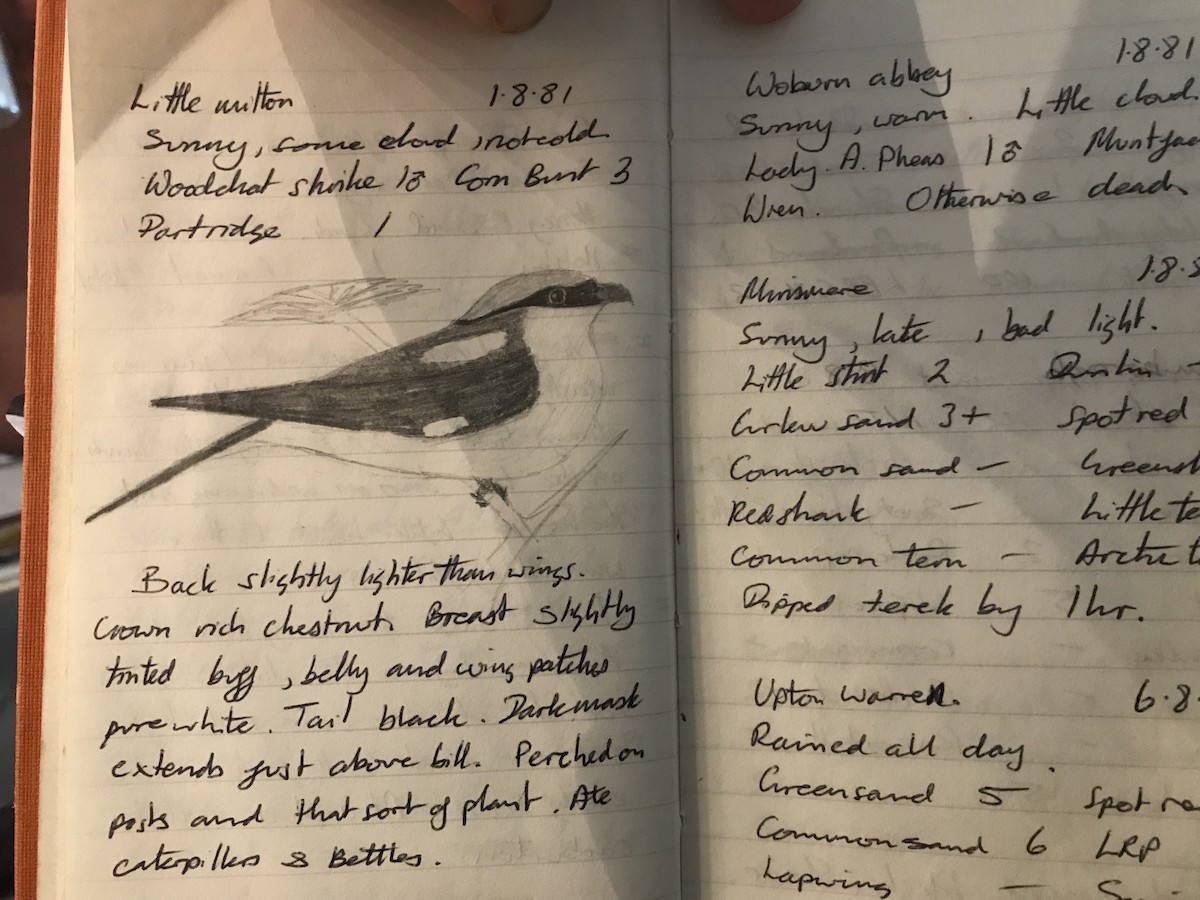 Little milton 1·8·81
Sunny, some cloud, not cold.
Woodchat shrike 1♂ Corn Bunt 3
Partridge 1
Back slightly lighter than wings.
Crown rich chestnut. Breast slightly
tinted buff, belly and wing patches
pure white. Tail black. Dark mask
extends just above bill. Perched on
posts and that sort of plant. Ate
caterpillers & Bettles.
Woburn abbey 1·8·81
Sunny, warm. Little cloud.
Lady. A. Pheas 1♂ Muntjac
Wren. Otherwise dead.
Minsmere 1·8·8
Sunny, late, bad light.
Little stint 2 Dunlin –
Curlew sand 3+ Spot red
Common sand – Greensh
Redshank – Little te
Common tern – Arctic t
Dipped terek by 1hr.
Upton warren. 6·8·
Rained all day.
Green sand 5 Spot re
Common sand 6 LRP
Lapwing –